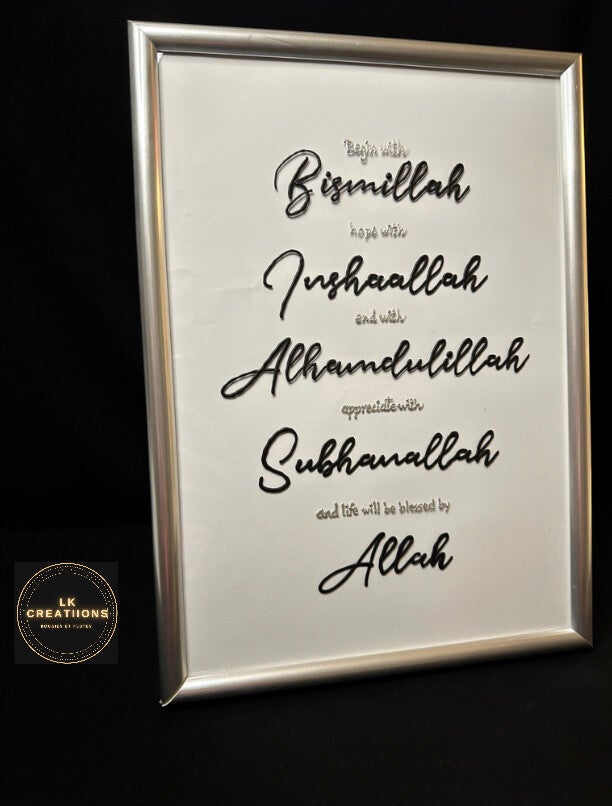 Begin with
Bismillah
hope with
Inshaallah
end with
Alhamdulillah
appreciate with
Subhanallah
and life will be blessed by
Allah
LK
CREATIIONS
BOUGIES ET FLUTES